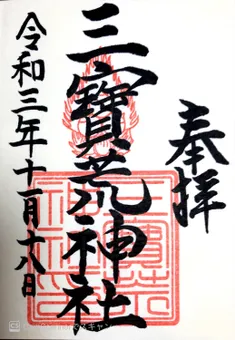 奉拝
三寳荒神社
令和三年十一月十八日